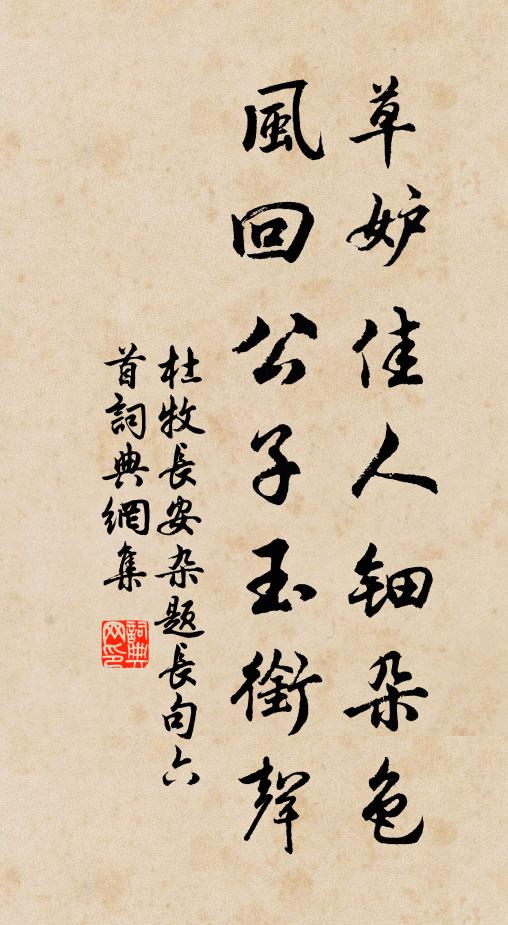 草妒佳人钿朵色
風回公子玉銜聲
杜牧長安杂題長句六
首詞典網集
詞典
网印